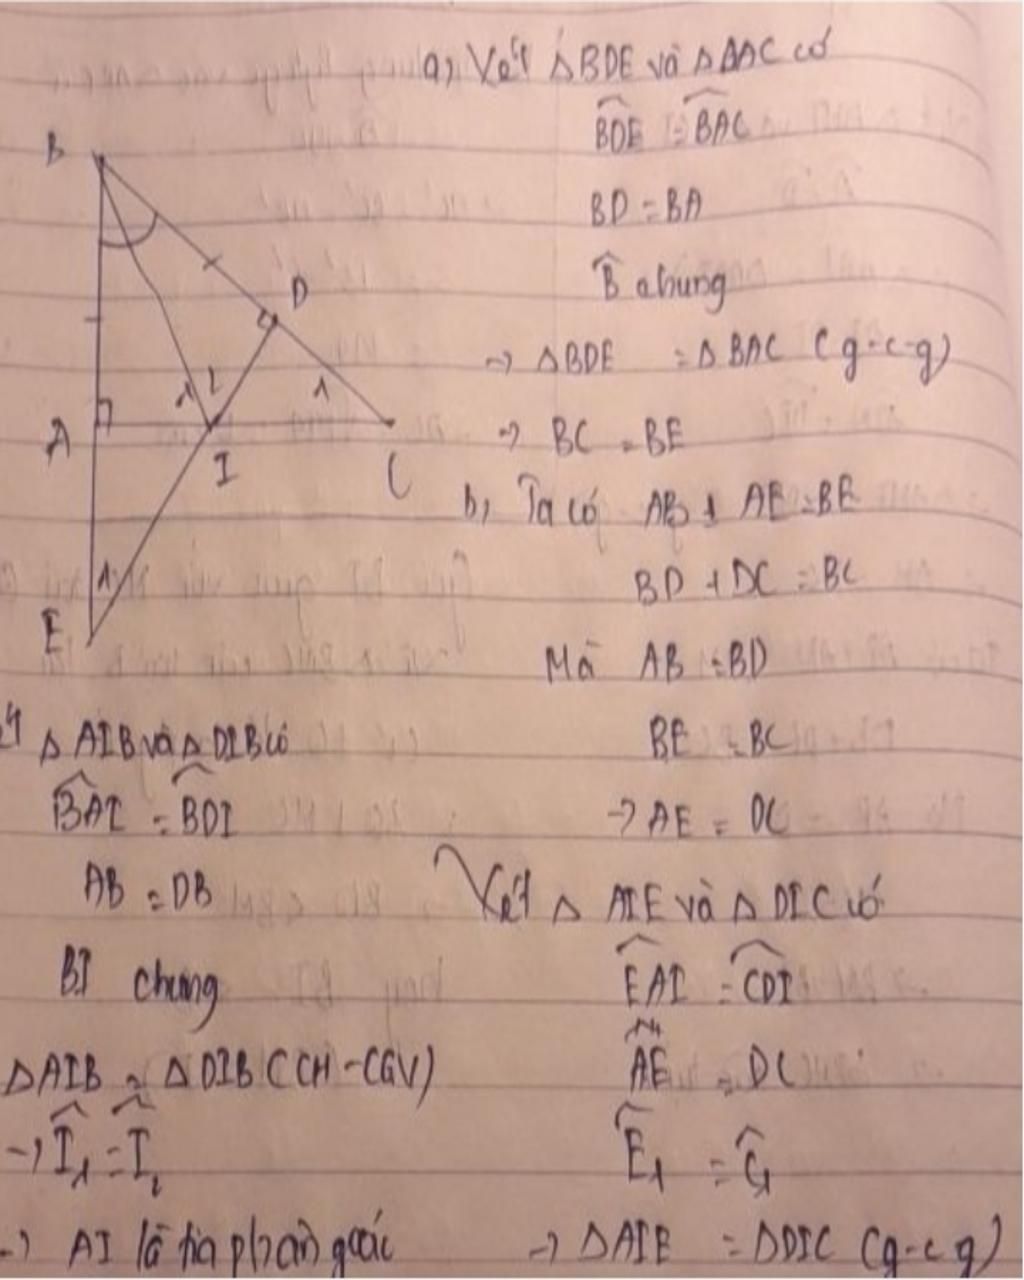 a, Xét ΔBDE và ΔBAC có
B̂DE = B̂AC
BD = BA
B̂ chung
→ ΔBDE = ΔBAC (g-c-g)
→ BC = BE
b, Ta có AB + AE = BE
BD + DC = BC
Mà AB = BD
BE = BC
→ AE = DC
Xét Δ AIE và Δ DIC có
ÊAI = ĈDI
AE = DC
Ê1 = Ĉ1
→ ΔAIE = ΔDIC (g-c g)
B
D
1 2
1
A
I
C
1
E
Δ AIB và Δ DIB có
B̂AI = B̂DI
AB = DB
BI chung
ΔAIB = ΔDIB (CH-CGV)
→ Î1 = Î2
→ AI là tia phân giác